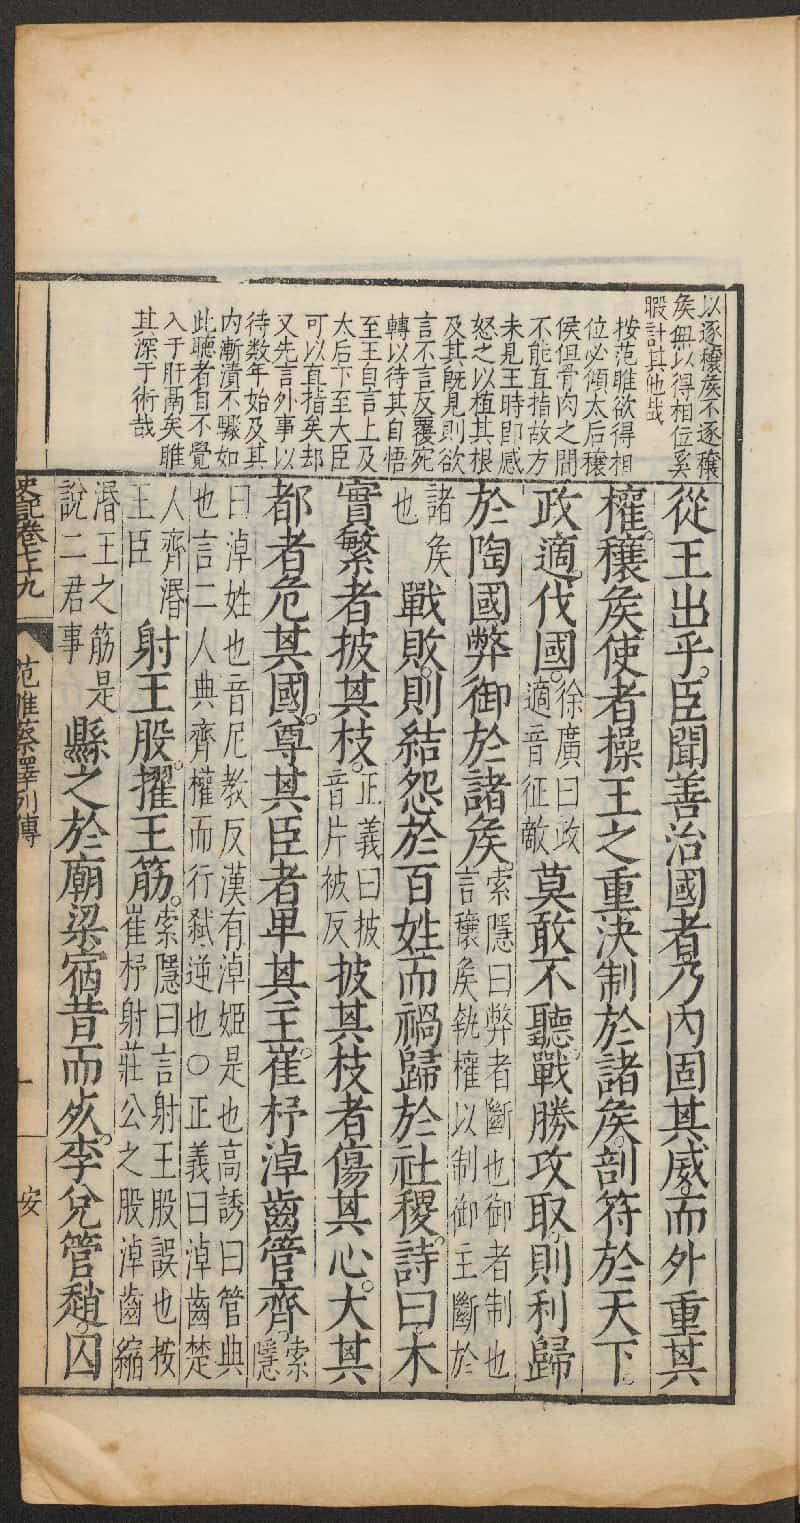 以逐穰矦不逐穰
矦無以得相位奚
暇計其他哉
按范睢欲得相
位必傾太后穰
侯但骨肉之間
不能直指故方
未見王時即感
怒之以植其根
及其既見則欲
言不言反覆宛
轉以待其自悟
至王自言上及
太后下至大臣
可以直指矣却
又先言外事以
待数年始及其
内漸漬不驟如
此聽者自不覺
入于肝膈矣睢
其深于術哉
從王出乎臣聞善治國者乃内固其威而外重其
權穰矦使者操王之重決制於諸矦剖符於天下
政適伐國徐廣曰政適音征敵莫敢不聽戰勝攻取則利歸
於陶國弊御於諸矦索隱曰弊者斷也御者制也言穰矦執權以制御主斷於
諸矦也戰敗則結怨於百姓而禍歸於社稷詩曰木
實繁者披其枝正義曰披音片被反披其枝者傷其心大其
都者危其國尊其臣者卑其主崔杼淖齒管齊索隱
曰淖姓也音尼教反漢有淖姬是也高誘曰管典也言二人典齊權而行弑逆也○正義曰淖齒楚
人齊湣王臣射王股擢王筋索隱曰言射王股誤也按崔杼射莊公之股淖齒縮
湣王之筋是說二君事縣之於廟梁宿昔而死李兌管趙囚
史記卷七十九
范睢蔡澤列傳
十
安